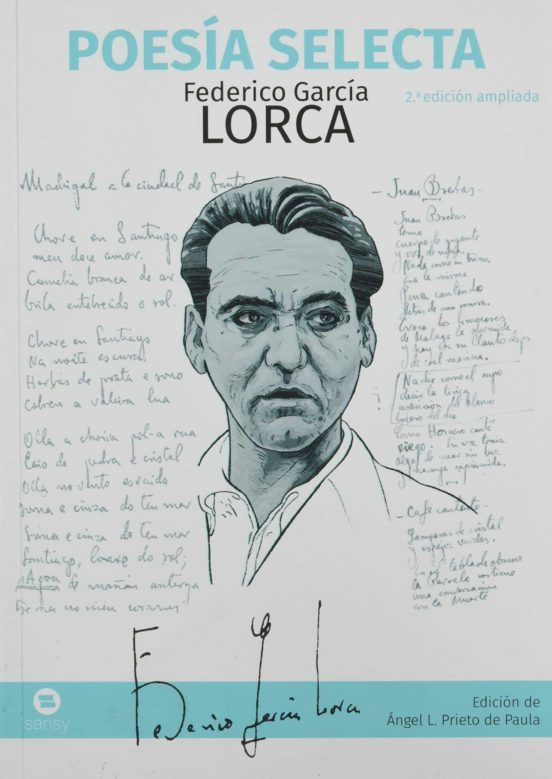 POESÍA SELECTA
Federico García
LORCA
2.ª edición ampliada
Madrigal a la ciudad de Sant
Chove en Santiago
meu doce amor.
Camelia branca do ar
brila entebrecida o sol.
Chove en Santiago
Na noite escura
Herbas de prata e sono
Cobren a valeira lua
Olla a choiva pol-a rua
Laio de pedra e cristal
Olla no vento esvaido
soma e cinza do teu mar
Soma e cinza do teu mar
Santiago, lonxe do sol;
Agoa de mañan anterga
- Juan Breva -
Juan Breva
tenia
cuerpo de gigante
y voz de niña.
Nada como su trino.
Era la misma
Pena cantando
detras de una sonrisa.
Evoca los limonares
de Malaga la dormida
y hay en su llanto dejos
de sal marina.
Como Homero cantó
ciego. Su voz tenia
algo de mar sin luz
y naranja exprimida.
- Café cantante -
Lamparas de cristal
y espejos verdes.
la Parrala sostiene
una conversacion
con la Muerte
Federico García Lorca
sansy
Edición de
Ángel L. Prieto de Paula